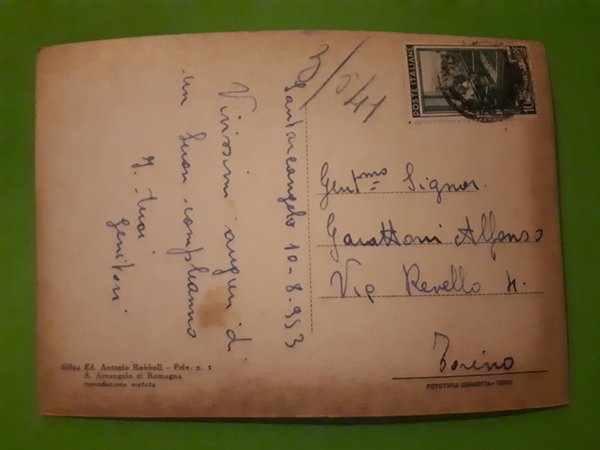 3/5 41
Santarcangelo 10-8-953
Vivissimi auguri di
un buon compleanno
I tuoi
genitori
POSTE ITALIANE
Gent.mo Signor.
Garattoni Alfonso
Via Revello 4.
Torino
Ed. Antonio Rabboli - Priv. n. 1
S. Arcangelo di Romagna
riproduzione vietata
FOTOTIPIA BERRETTA - TERNI